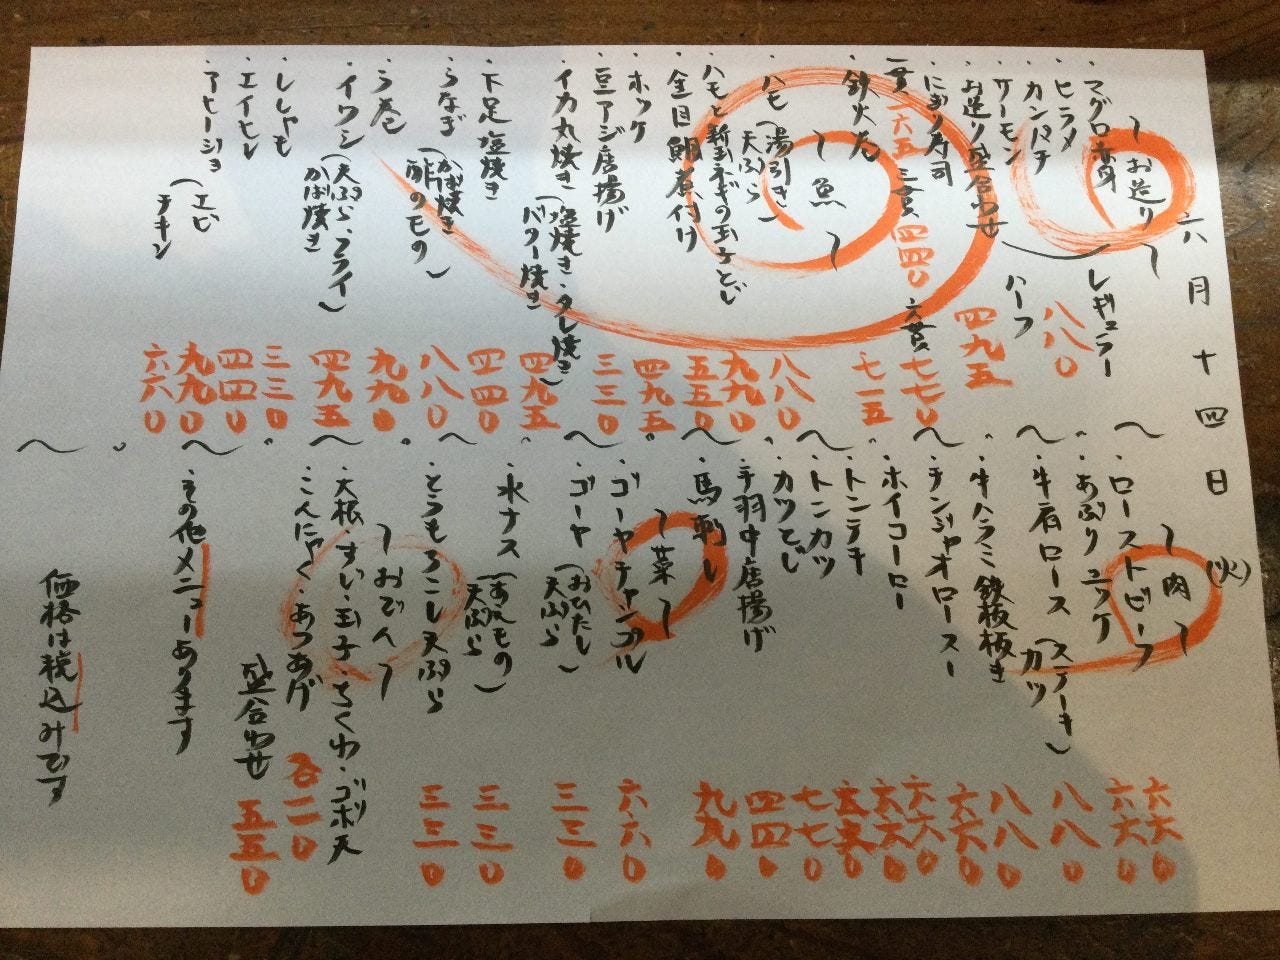 六月十四日(火)
〜お造り〜
・マグロ赤身
・ヒラメ
・カンパチ
・サーモン
レギュラー 八八〇
ハーフ 四九五
・お造り盛合わせ
・にぎり寿司
一貫 一六五 三貫 四四〇 六貫 七七〇
・鉄火巻 七一五
〜魚〜
・ハモ(湯引き 天ぷら) 八八〇
・ハモと新玉ネギの玉子とじ 九九〇
・金目鯛煮付け 五五〇
・ホッケ 四九五
・豆アジ唐揚げ 三三〇
・イカ丸焼き(塩焼き・タレ焼き バター焼き) 四九五
・下足塩焼き 四四〇
・うなぎ(かば焼き 酢のもの) 八八〇
・う巻 九九〇
・イワシ(天ぷら、フライ かば焼き) 四九五
・ししゃも 三三〇
・エイヒレ 四四〇
・アヒージョ(エビ 九九〇
チキン 六六〇
〜肉〜
・ローストビーフ 六六〇
・あぶりユッケ 六六〇
・牛肩ロース(ステーキ カツ) 八八〇
・牛ハラミ鉄板焼き 八八〇
・チンジャオロースー 六六〇
・ホイコーロー 六六〇
・トンテキ 六六〇
・トンカツ
・カツとじ 七七〇
・手羽中唐揚げ 四四〇
・馬刺し 九九〇
〜菜〜
・ゴーヤチャンプル 六六〇
・ゴーヤ(おひたし 天ぷら) 三三〇
・水ナス(あえもの 天ぷら) 三三〇
・とうもろこし天ぷら 三三〇
〜おでん〜
・大根・すじ・玉子・ちくわ・ゴボ天
・こんにゃく・あつあげ 各一一〇
盛合わせ 五五〇
・その他メニューあります
価格は税込みです